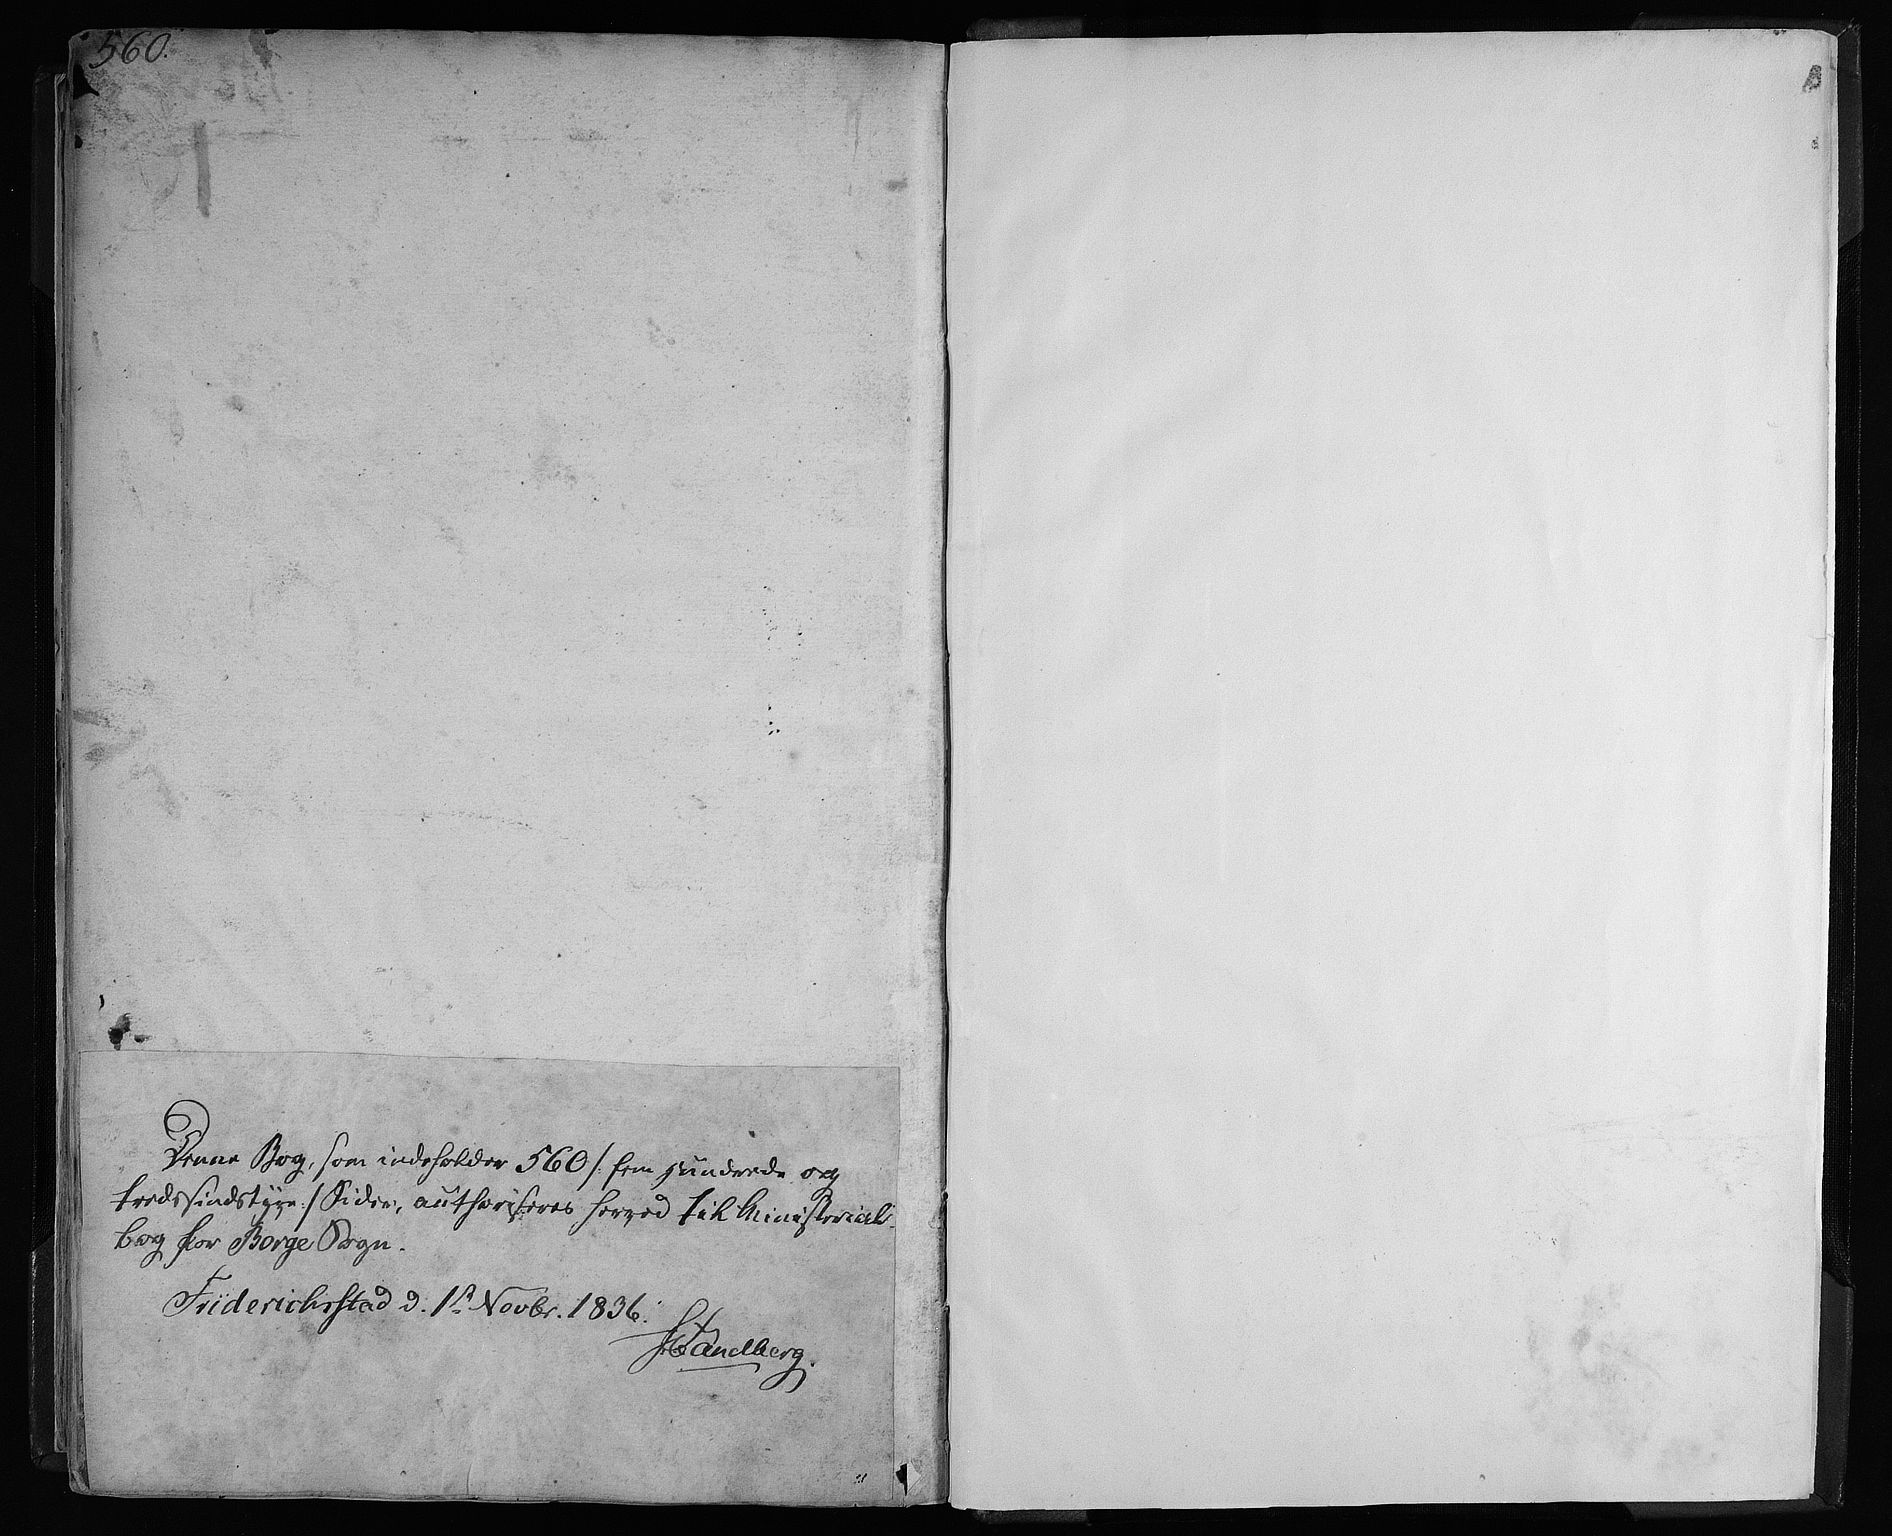 560.
Denne Bog, som indeholder 560 /: fem Hundrede og
tredssindstyve :/ Sider, authoriseres herved til Ministerial-
bog for Borge Sogn.
Friderichsstad d. 1ste Novbr. 1836.
Sandberg.